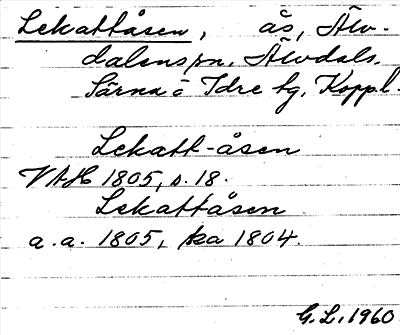 Lekattåsen, ås, Älv-
dalens sn. Älvdals,
Särna o Idre tg, Koppl.
Lekatt-åsen
VAH 1805, s. 18.
Lekattåsen
a.a. 1805, ka 1804.
G.L. 1960